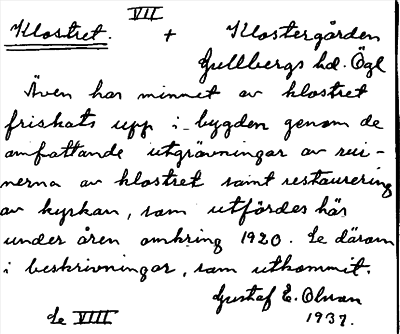 VII
Klostret. + Klostergården
Gullbergs hd. Ögl
Även har minnet av klostret
friskats upp i bygden genom de
omfattande utgrävningar av rui-
nerna av klostret samt restaurering
av kyrkan, som utfördes här
under åren omkring 1920. Se därom
i beskrivningar, som utkommit.
Gustaf E. Olsson
Se VIII 1937.